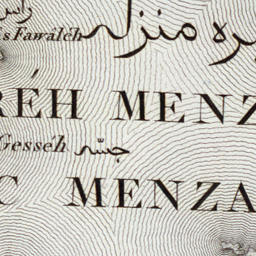 راس
s Fawâléh
يره منزله
RÉH MENZ
Gesséh جسّه
C MENZA